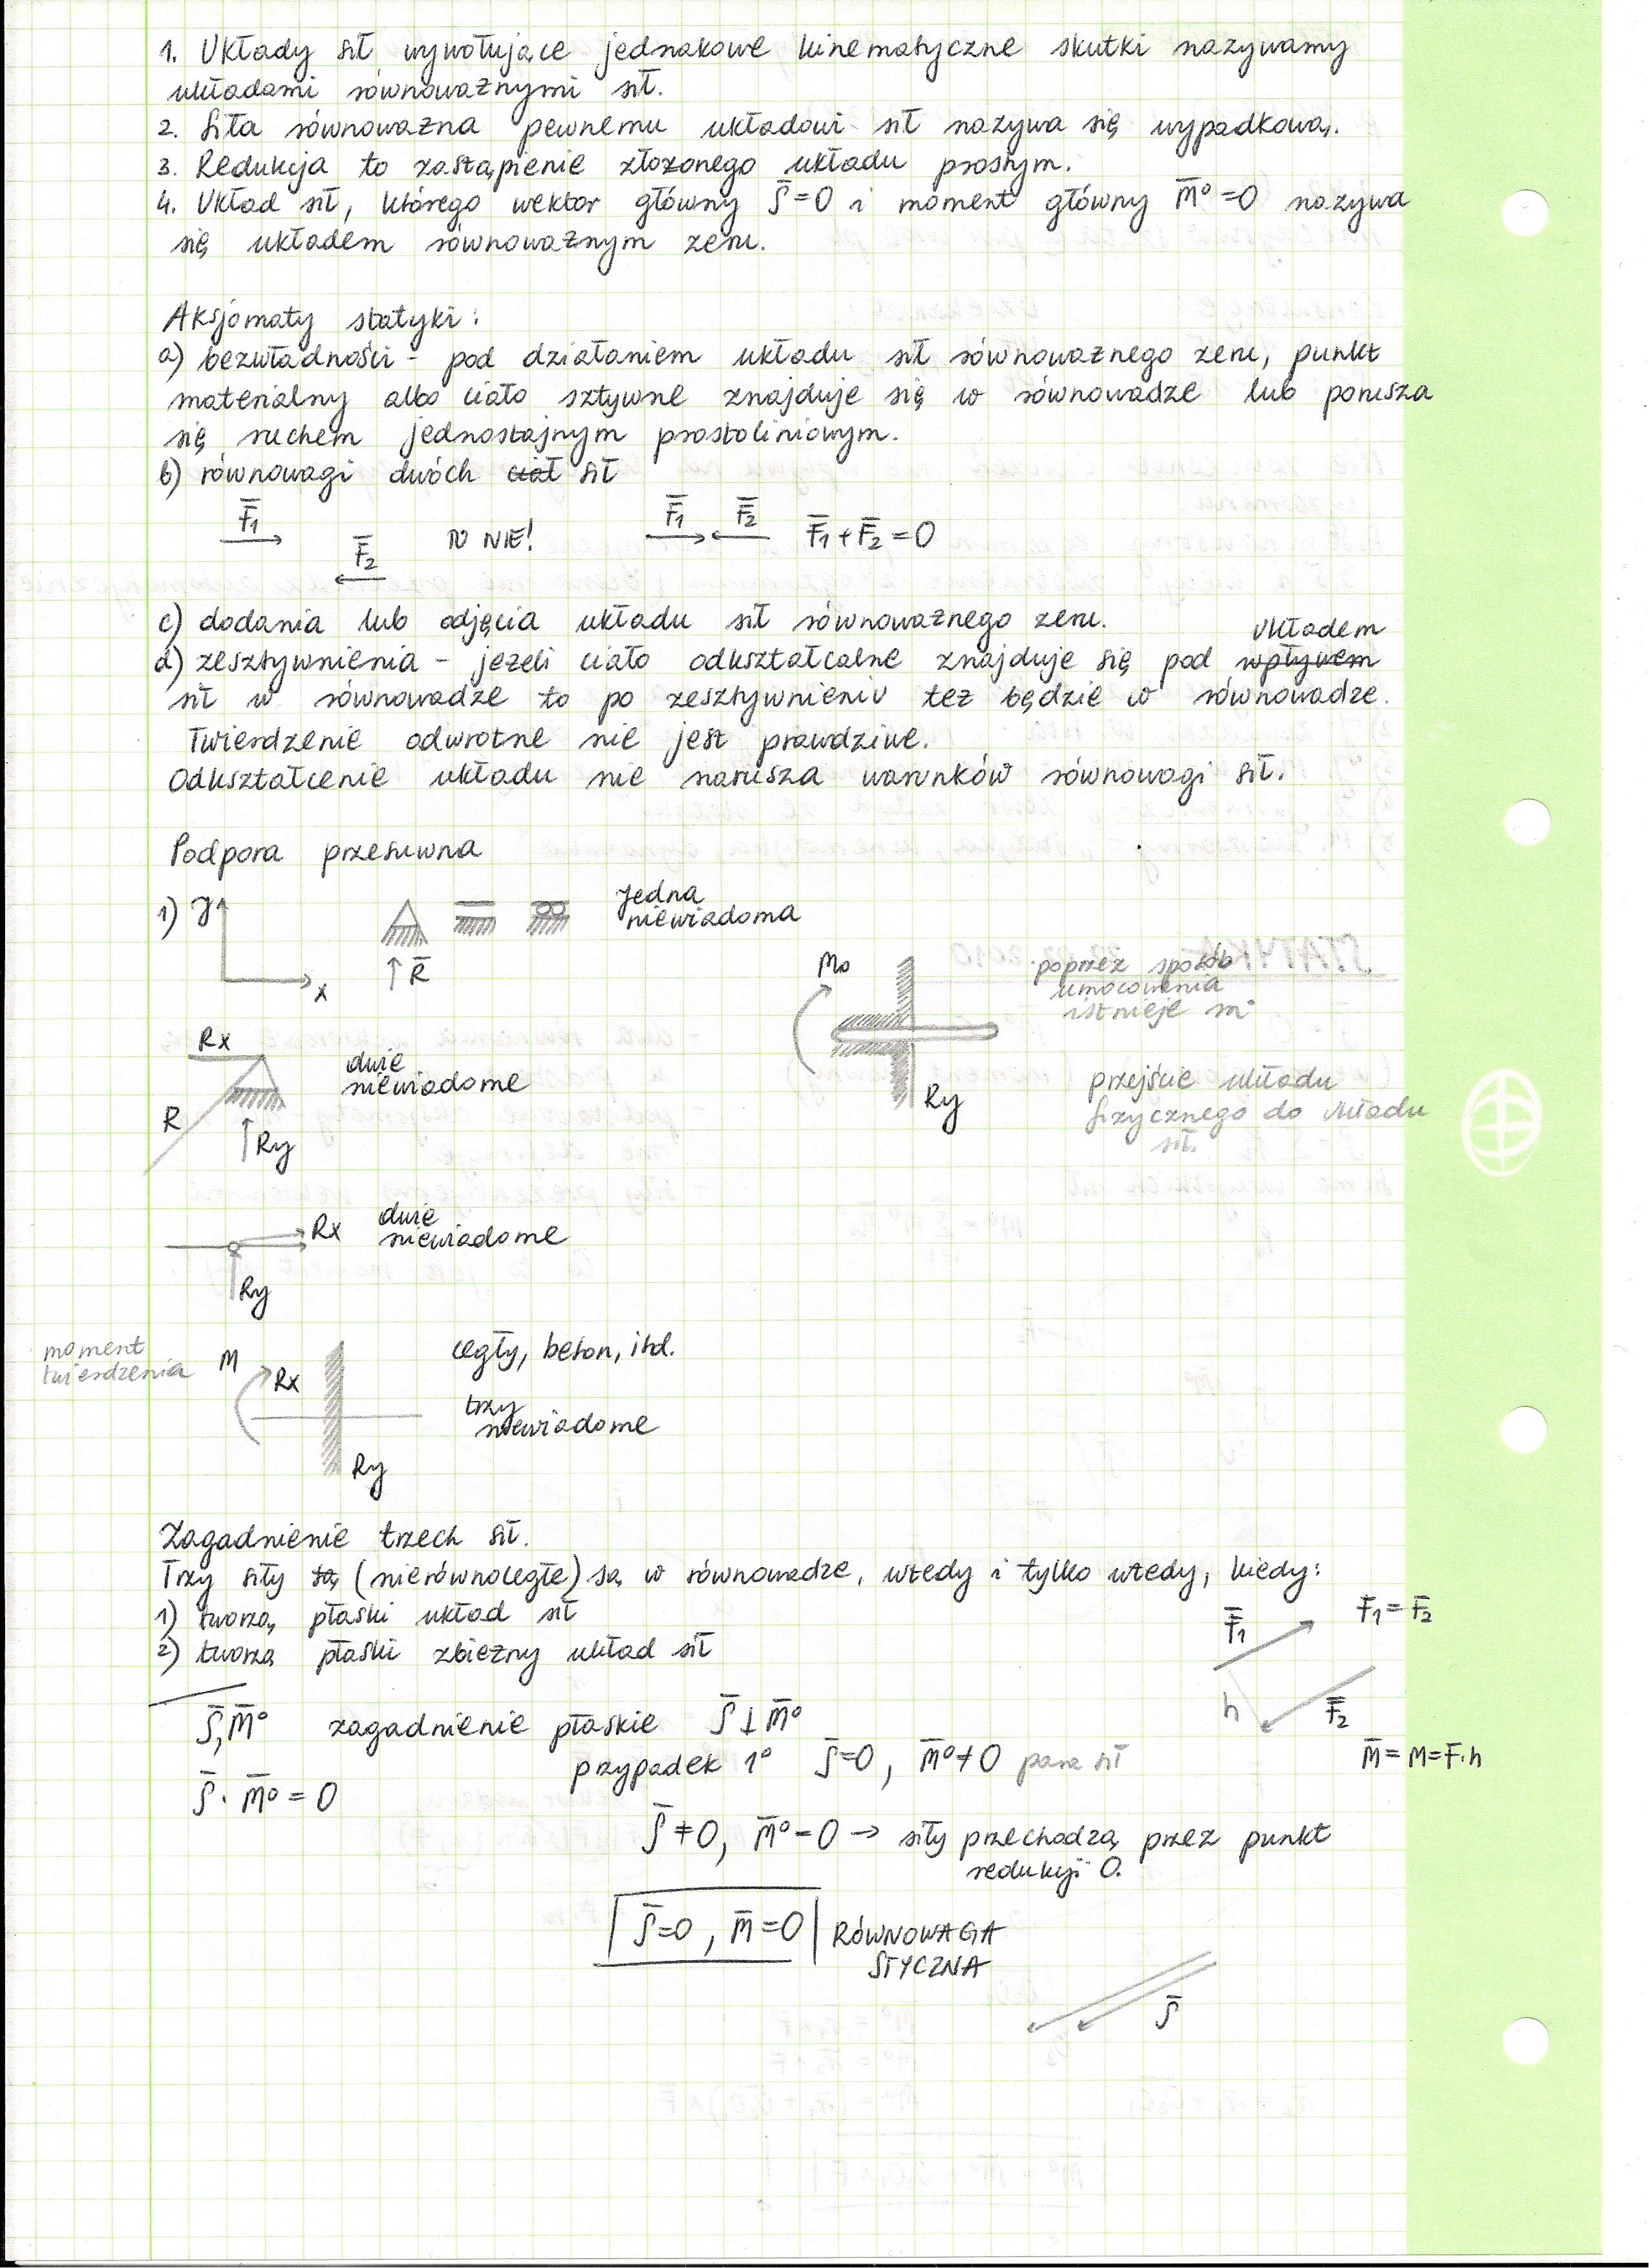 1. Układy sił wywołujące jednakowe kinematyczne skutki nazywamy
układami równoważnymi sił.
2. Siła równoważna pewnemu układowi sił nazywa się wypadkową.
3. Redukcja to zastąpienie złożonego układu prostym.
4. Układ sił, którego wektor główny S̄=0 i moment główny M̄⁰=0 nazywa
się układem równoważnym zeru.
Aksjomaty statyki:
a) bezwładności - pod działaniem układu sił równoważnego zeru, punkt
materialny albo ciało sztywne znajduje się w równowadze lub porusza
się ruchem jednostajnym prostoliniowym.
b) równowagi dwóch ciał sił
F̄1 F̄2 TO NIE! F̄1 F̄2 F̄1+F̄2=0
c) dodania lub odjęcia układu sił równoważnego zeru.
układem
d) zesztywnienia - jeżeli ciało odkształcalne znajduje się pod wpływem
sił w równowadze to po zesztywnieniu też będzie w równowadze.
Twierdzenie odwrotne nie jest prawdziwe.
Odkształcenie układu nie narusza warunków równowagi sił.
Podpora przesuwna
1) y x R̄ jedna
niewiadoma
M0 Ry
poprzez sposób
umocowania
istnieje m
Rx R Ry dwie
niewiadome
przejście układu
fizycznego do układu
sił.
Rx Ry dwie
niewiadome
moment
twierdzenia M Rx Ry
cegły, beton, itd.
trzy
niewiadome
Zagadnienie trzech sił.
Trzy siły są (nierównoległe) są w równowadze, wtedy i tylko wtedy, kiedy:
1) tworzą płaski układ sił
2) tworzą płaski zbieżny układ sił
F̄1 F̄1=F̄2
h F̄2
M̄=M=F·h
S̄,M̄⁰ zagadnienie płaskie S̄⊥M̄⁰
przypadek 1° S̄=0, M̄⁰≠0 para sił
S̄·M̄⁰=0
S̄≠0, M̄⁰=0 → siły przechodzą przez punkt
redukcji O.
S̄=0, M̄=0 RÓWNOWAGA
STYCZNA
S̄